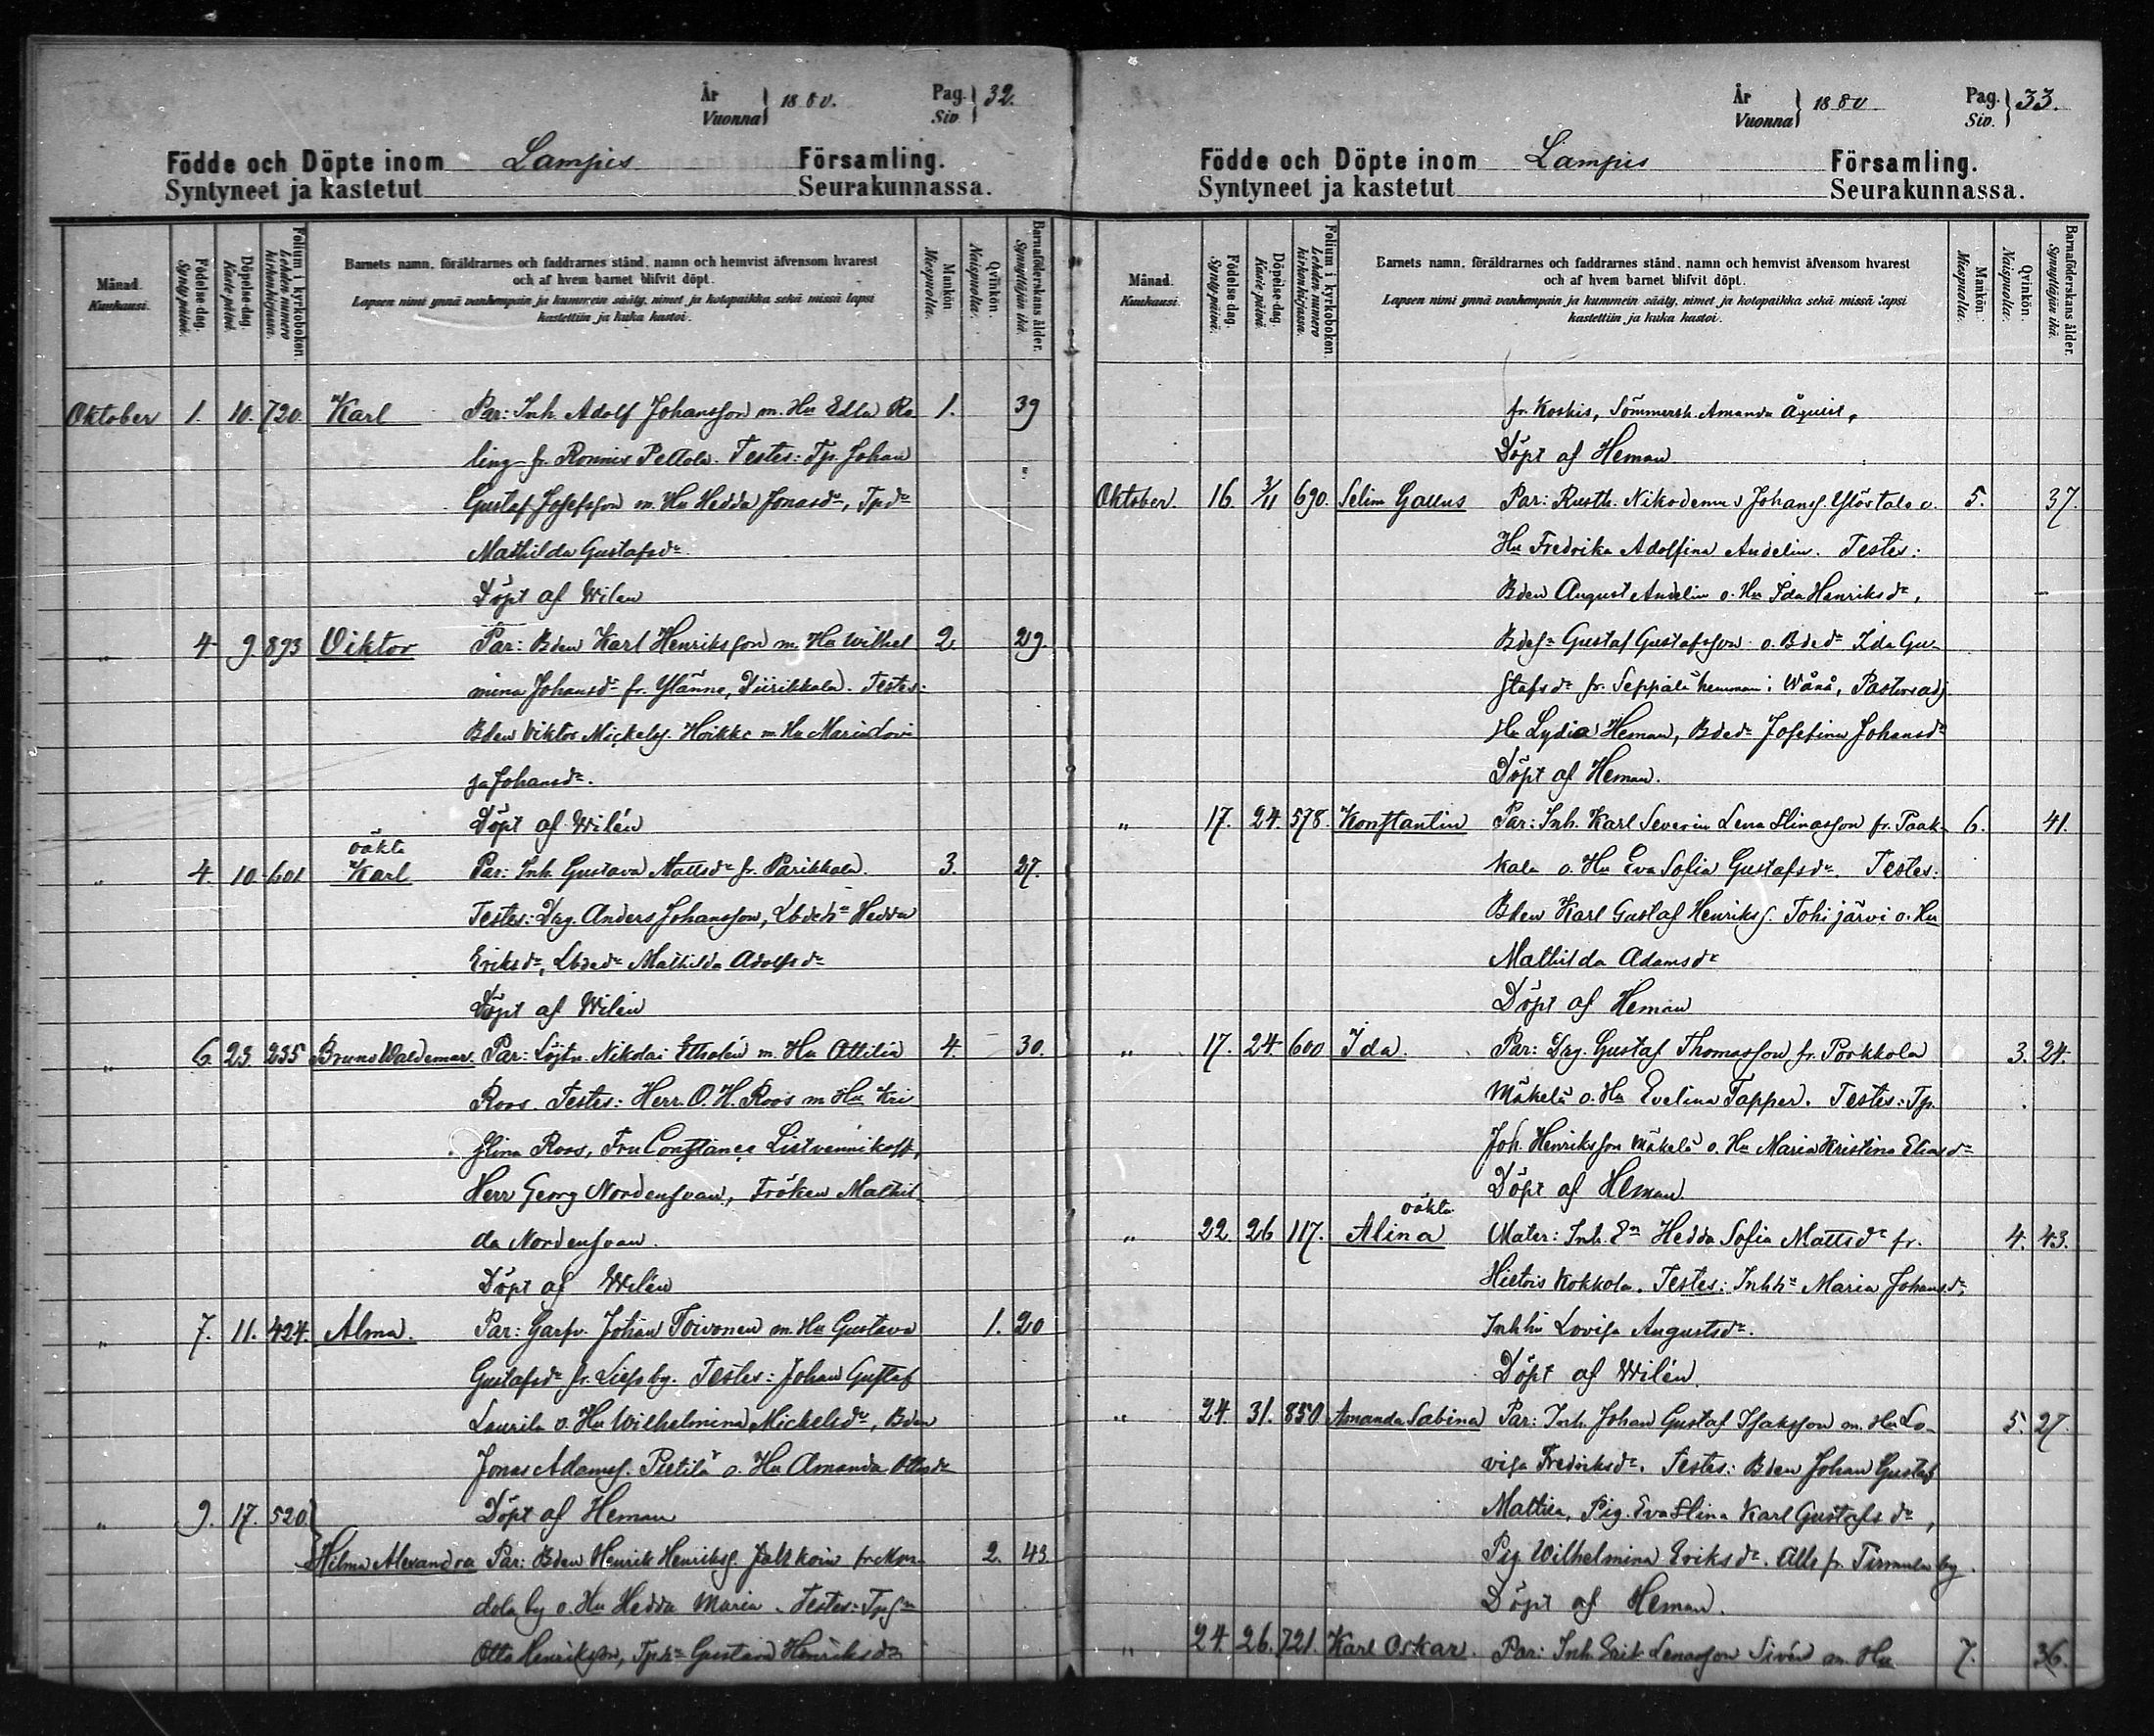 År Vuonna 1880. Pag. Siv. 32.
Födde och Döpte inom Lampis Församling.
Syntyneet ja kastetut Seurakunnassa.
Månad. Kuukausi.
Födelse-dag. Syntypäivä.
Döpelse-dag. Kaste päivä.
Folium i kyrkoboken. Lehden numero kirkonkirjassa.
Barnets namn, föräldrarnes och faddrarnes stånd, namn och hemvist äfvensom hvarest
och af hvem barnet blifvit döpt.
Lapsen nimi ynnä vanhempain ja kummein sääty, nimet ja kotopaikka sekä missä lapsi
kastettiin ja kuka kastoi.
Mankön. Miespuolia.
Qvinkön. Naispuolia.
Barnaföderskans ålder. Synnyttäjän ikä.
Oktober 1. 10. 720. Karl Par: Inh. Adolf Johansson m. Hu Edla Ro- 1. 39
ling fr. Ronnis Pellola. Testes: Tp. Johan
Gustaf Josefsson m. Hu Hedda Jonasdr, Tpdr
Mathilda Gustafsdr.
Döpt af Wilen
" 4 9. 893 Viktor Par: Bden Karl Henriksson m. Hu Wilhel 2. 29.
mina Johansdr fr. Ylänne, Diirikkala. Testes:
Bden Viktor Mickelss. Hoikko m Hu Maria Lovi
sa Johansdr.
Döpt af Wilén
oäkta
" 4. 10 601 Karl Par: Inh. Gustava Mattsdr fr. Parikkala. 3. 27.
Testes: Drg. Anders Johansson, Lbdehr Hedda
Eriksdr, Lbdedr Mathilda Adolfsdr
Döpt af Wilén
" 6 23 235 Bruno Waldemar. Par: Löjtn. Nikolai Etholén m. Hu Ottilia 4. 30.
Roos. Testes: Herr. O. H. Roos m Hu Kri
stina Roos, Fru Constance Listvennikoff,
Herr Georg Nordensvan, Fröken Mathil
da Nordensvan.
Döpt af Wilén
" 7. 11. 424. Alma. Par: Garfv. Johan Toivonen m. Hu Gustava 1. 20
Gustafsdr fr. Liesoby. Testes: Johan Gustaf
Laurila o. Hu Wilhelmina Mickelsdr, Bden
Jonas Adamss. Pietilä o. Hu Amanda Ottosdr
" 9. 17. 520. Döpt af Heman
Hilma Alexandra Par: Bden Henrik Henrikss. 2. 43
dola by o. Hu Hedda Maria. Testes: Tpsn
Otto Henriksson, Tphr Gustava Henriksdr
År Vuonna 1880 Pag. Siv. 33.
Födde och Döpte inom Lampis Församling.
Syntyneet ja kastetut Seurakunnassa.
Månad. Kuukausi.
Födelse-dag. Syntypäivä.
Döpelse-dag. Kaste päivä.
Folium i kyrkoboken. Lehden numero kirkonkirjassa.
Barnets namn, föräldrarnes och faddrarnes stånd, namn och hemvist äfvensom hvarest
och af hvem barnet blifvit döpt.
Lapsen nimi ynnä vanhempain ja kummein sääty, nimet ja kotopaikka sekä missä lapsi
kastettiin ja kuka kastoi.
Mankön Miespuolia.
Qvinkön. Naispuolia.
Barnaföderskans ålder. Synnyttäjän ikä.
fr. Koskis, Sömmersk. Amanda Åquist,
Döpt af Heman
Oktober. 16. 3/11 690. Selim Gallus Par: Rusth. Nikodemus Johanss. Ylöstalo o. 5. 37.
Hu Fredrika Adolfina Andelin. Testes:
Bden August Andelin o. Hu Ida Henriksdr,
Bdesn Gustaf Gustafsson o. Bdedr Ida Gu-
stafsdr fr. Seppälä hemman i Wånå, Pastorsadj
Hu Lydia Heman, Bdedr Josefina Johansdr
Döpt af Heman.
" 17. 24. 578. Konstantin Par: Inh. Karl Severin Lena Stinasson fr. Paak- 6. 41.
kala o. Hu Eva Sofia Gustafsdr. Testes:
Bden Karl Gustaf Henrikss. Tohijärvi o. Hu
Mathilda Adamsdr
Döpt af Heman
" 17. 24 600 Ida. Par: Drg. Gustaf Thomasson fr. Porkkola 3. 24.
Mäkelä o. Hu Evelina Tapper. Testes: Tp.
Joh. Henriksson Mäkelä o. Hu Maria Kristina Eliasdr
Döpt af Heman
oäkta
" 22 26 117. Alina Mater: Inh. En Hedda Sofia Mattsdr fr. 4. 43.
Hietois Kokkola. Testes: Inhhr Maria Johansdr,
Inhhu Lovisa Augustsdr.
Döpt af Wilén.
" 24. 31. 850 Amanda Sabina Par: Inh. Johan Gustaf Isaksson m. Hu Lo- 5. 27.
visa Fredriksdr. Testes: Bden Johan Gustaf
Mattila, Pig. Eva Stina Karl Gustafsdr,
Pig Wilhelmina Eriksdr. Alla fr. Tirmula by.
Döpt af Heman.
" 24. 26. 721. Karl Oskar. Par: Inh. Erik Lenasson Sivén m. Hu 7. 36.